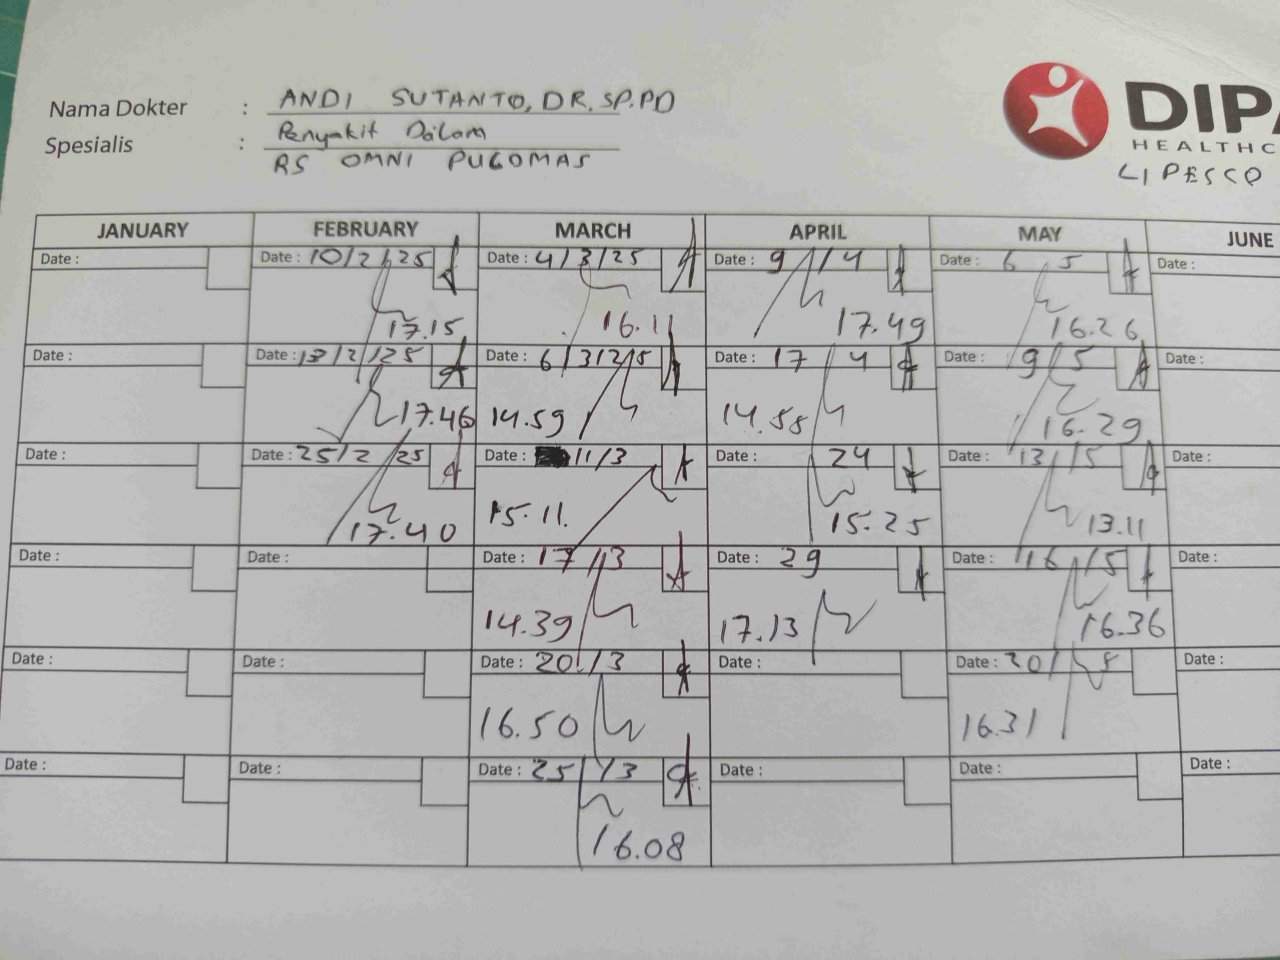 Nama Dokter : ANDI SUTANTO, DR. SP.PD
Spesialis : Penyakit Dalam
RS OMNI PULOMAS
DIPA
HEALTHC
LIPESCO
JANUARY FEBRUARY MARCH APRIL MAY JUNE
Date : Date : 10/2/25 Date : 4/3/25 Date : 9/4 Date : 6 5 Date :
17.15 16.11 17.49 16.26
Date : Date : 18/2/25 Date : 6/3/25 Date : 17 4 Date : 9/5 Date :
17.46 14.59 14.58 16.29
Date : Date : 25/2 25 Date : 11/3 Date : 24 Date : 13/5 Date :
17.40 15.11. 15.25 13.11
Date : Date : Date : 17/3 Date : 29 Date : 16/5 Date :
14.39 17.13 16.36
Date : Date : Date : 20/3 Date : Date : 20/5 Date :
16.50 16.31
Date : Date : Date : 25/3 Date : Date : Date :
16.08